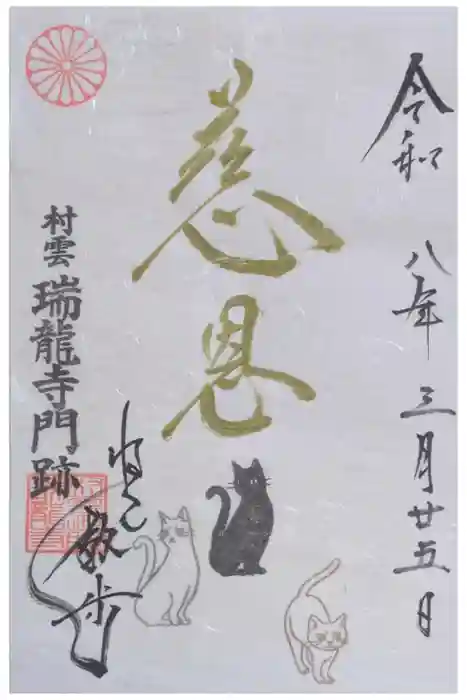 令和 八年 三月 廿五日
慈恩
村雲 瑞龍寺門跡